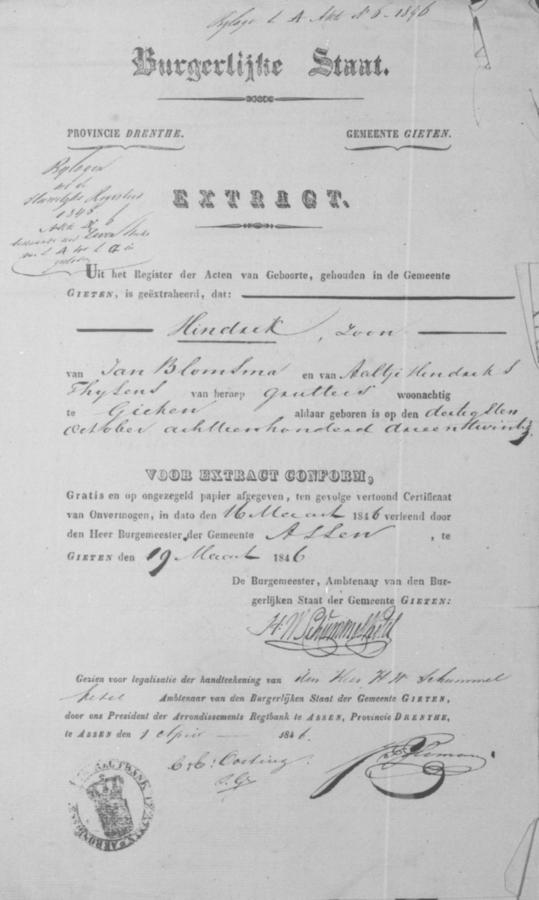 Bylage L A Akte No 6 - 1846
Burgerlijke Staat.
PROVINCIE DRENTHE.
GEMEENTE GIETEN.
Bylagen
tot de
Huwelyks Registers
1846
Akte No 6
L A tot L G
EXTRACT.
Uit het Register der Acten van Geboorte, gehouden in de Gemeente
GIETEN, is geëxtraheerd, dat:
Hindrek, Zoon
van Jan Blomsma en van Aaltje Hendriks
Thysens van beroep grutters woonachtig
te Gieten aldaar geboren is op den dertigsten
October achttienhonderd drieentwintig.
VOOR EXTRACT CONFORM,
Gratis en op ongezegeld papier afgegeven, ten gevolge vertoond Certificaat
van Onvermogen, in dato den 16 Maart 1846 verleend door
den Heer Burgemeester der Gemeente Assen, te
GIETEN den 19 Maart 1846
De Burgemeester, Ambtenaar van den Bur-
gerlijken Staat der Gemeente GIETEN:
H. W. Schummelketel
Gezien voor legalisatie der handteekening van den Heer H W Schummel
ketel Ambtenaar van den Burgerlijken Staat der Gemeente GIETEN,
door ons President der Arrondissements Regtbank te ASSEN, Provincie DRENTHE,
te ASSEN den 1 April 1846.